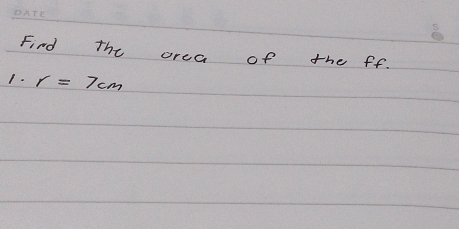 DATE
Find the area of the ff.
1. r = 7cm